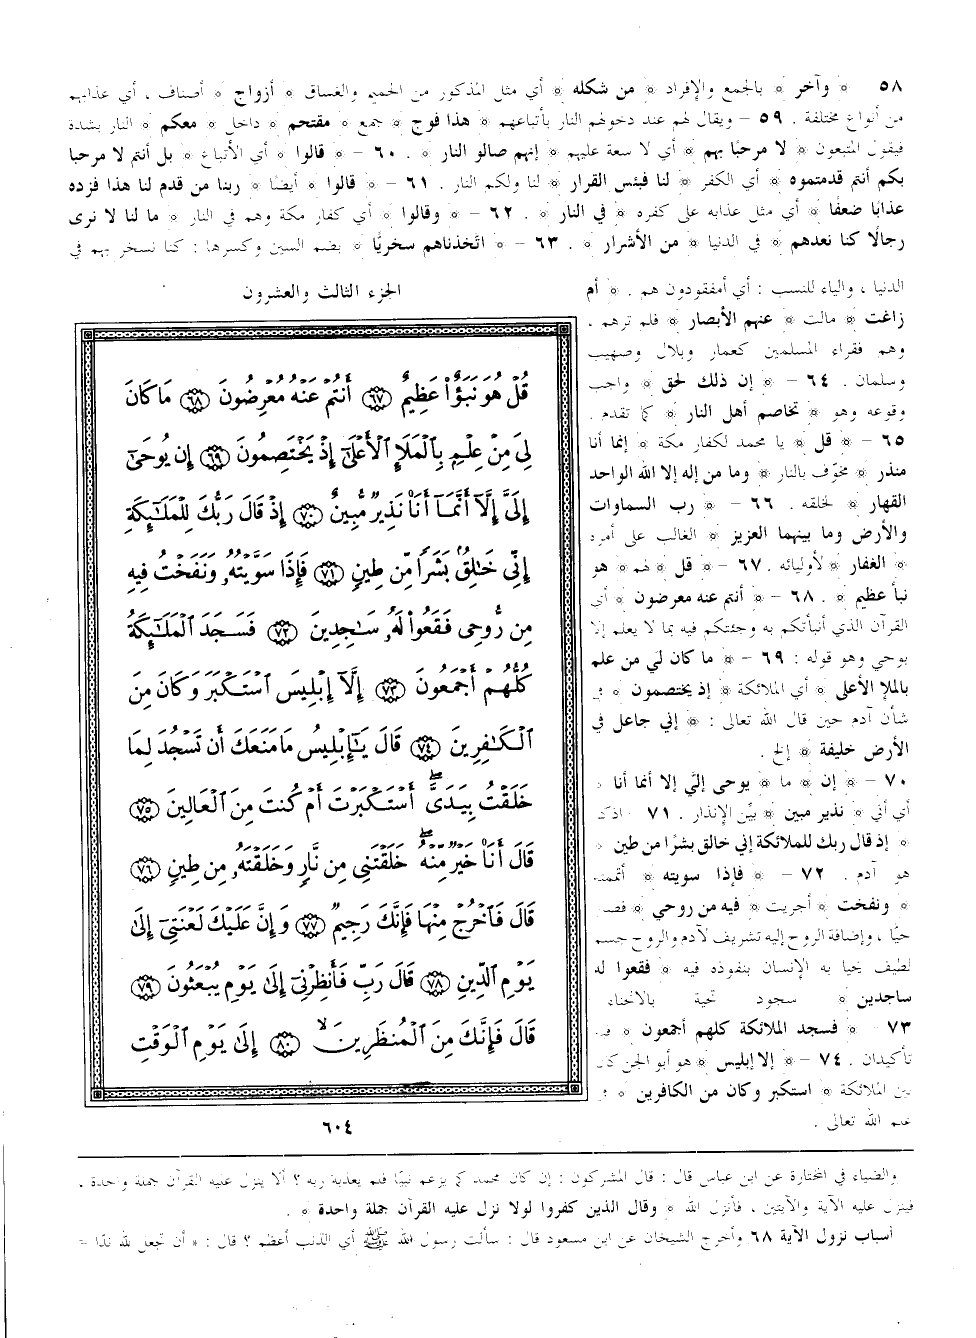 ٥٨ ﴿ وآخر ﴾ بالجمع والإفراد ﴿ من شكله ﴾ أي مثل المذكور من الحميم والغساق ﴿ أزواج ﴾ أصناف ، أي عذابهم
من أنواع مختلفة . ٥٩ – ويقال لهم عند دخولهم النار بأتباعهم ﴿ هذا فوج ﴾ جمع ﴿ مقتحم ﴾ داخل ﴿ معكم ﴾ النار بشدة
فيقول المتبعون ﴿ لا مرحبًا بهم ﴾ أي لا سعة عليهم ﴿ إنهم صالو النار ﴾ . ٦٠ – ﴿ قالوا ﴾ أي الأتباع ﴿ بل أنتم لا مرحبا
بكم أنتم قدمتموه ﴾ أي الكفر ﴿ لنا فبئس القرار ﴾ لنا ولكم النار . ٦١ – ﴿ قالوا ﴾ أيضًا ﴿ ربنا من قدم لنا هذا فزده
عذابًا ضعفًا ﴾ أي مثل عذابه على كفره ﴿ في النار ﴾ . ٦٢ – ﴿ وقالوا ﴾ أي كفار مكة وهم في النار ﴿ ما لنا لا نرى
رجالًا كنا نعدهم ﴾ في الدنيا ﴿ من الأشرار ﴾ . ٦٣ – ﴿ اتخذناهم سخريًا ﴾ بضم السين وكسرها : كنا نسخر بهم في
الدنيا ، والياء للنسب : أي أمفقودون هم . ﴿ أم
زاغت ﴾ مالت ﴿ عنهم الأبصار ﴾ فلم ترهم .
وهم فقراء المسلمين كعمار وبلال وصهيب
وسلمان . ٦٤ – ﴿ إن ذلك لحق ﴾ واجب
وقوعه وهو ﴿ تخاصم أهل النار ﴾ كما تقدم .
٦٥ – ﴿ قل ﴾ يا محمد لكفار مكة ﴿ إنما أنا
منذر ﴾ مخوّف بالنار ﴿ وما من إله إلا الله الواحد
القهار ﴾ لخلقه . ٦٦ – ﴿ رب السماوات
والأرض وما بينهما العزيز ﴾ الغالب على أمره
﴿ الغفار ﴾ لأوليائه . ٦٧ – ﴿ قل ﴾ لهم ﴿ هو
نبأ عظيم ﴾ . ٦٨ – ﴿ أنتم عنه معرضون ﴾ أي
القرآن الذي أنبأتكم به وجئتكم فيه بما لا يعلم إلا
بوحي وهو قوله : ٦٩ – ﴿ ما كان لي من علم
بالملإ الأعلى ﴾ أي الملائكة ﴿ إذ يختصمون ﴾ في
شأن آدم حين قال الله تعالى : ﴿ إني جاعل في
الأرض خليفة ﴾ إلخ .
٧٠ – ﴿ إن ﴾ ما ﴿ يوحى إلي إلا أنما أنا ﴾
أي أني ﴿ نذير مبين ﴾ بيّن الإنذار . ٧١ اذكر
﴿ إذ قال ربك للملائكة إني خالق بشرًا من طين ﴾
هو آدم . ٧٢ – ﴿ فإذا سويته ﴾ أتممته
﴿ ونفخت ﴾ أجريت ﴿ فيه من روحي ﴾ فصار
حيًا ، وإضافة الروح إليه تشريف لآدم والروح جسم
لطيف يحيا به الإنسان بنفوذه فيه ﴿ فقعوا له
ساجدين ﴾ سجود تحية بالانحناء
٧٣ ﴿ فسجد الملائكة كلهم أجمعون ﴾ فيه
تأكيدان . ٧٤ – ﴿ إلا إبليس ﴾ هو أبو الجن كان
بين الملائكة ﴿ استكبر وكان من الكافرين ﴾ في
علم الله تعالى .
الجزء الثالث والعشرون
قُلْ هُوَ نَبَؤٌاْ عَظِيمٌ ٦٧ أَنتُمْ عَنْهُ مُعْرِضُونَ ٦٨ مَا كَانَ
لِىَ مِنْ عِلْمٍۭ بِٱلْمَلَإِ ٱلْأَعْلَىٰٓ إِذْ يَخْتَصِمُونَ ٦٩ إِن يُوحَىٰٓ
إِلَىَّ إِلَّآ أَنَّمَآ أَنَا۠ نَذِيرٌ مُّبِينٌ ٧٠ إِذْ قَالَ رَبُّكَ لِلْمَلَٰٓئِكَةِ
إِنِّى خَٰلِقٌۢ بَشَرًا مِّن طِينٍ ٧١ فَإِذَا سَوَّيْتُهُۥ وَنَفَخْتُ فِيهِ
مِن رُّوحِى فَقَعُواْ لَهُۥ سَٰجِدِينَ ٧٢ فَسَجَدَ ٱلْمَلَٰٓئِكَةُ
كُلُّهُمْ أَجْمَعُونَ ٧٣ إِلَّآ إِبْلِيسَ ٱسْتَكْبَرَ وَكَانَ مِنَ
ٱلْكَٰفِرِينَ ٧٤ قَالَ يَٰٓإِبْلِيسُ مَا مَنَعَكَ أَن تَسْجُدَ لِمَا
خَلَقْتُ بِيَدَىَّ ۖ أَسْتَكْبَرْتَ أَمْ كُنتَ مِنَ ٱلْعَالِينَ ٧٥
قَالَ أَنَا۠ خَيْرٌ مِّنْهُ ۖ خَلَقْتَنِى مِن نَّارٍ وَخَلَقْتَهُۥ مِن طِينٍ ٧٦
قَالَ فَٱخْرُجْ مِنْهَا فَإِنَّكَ رَجِيمٌ ٧٧ وَإِنَّ عَلَيْكَ لَعْنَتِىٓ إِلَىٰ
يَوْمِ ٱلدِّينِ ٧٨ قَالَ رَبِّ فَأَنظِرْنِىٓ إِلَىٰ يَوْمِ يُبْعَثُونَ ٧٩
قَالَ فَإِنَّكَ مِنَ ٱلْمُنظَرِينَ ۙ ٨٠ إِلَىٰ يَوْمِ ٱلْوَقْتِ
٦٠٤
والضياء في المختارة عن ابن عباس قال : قال المشركون : إن كان محمد كما يزعم نبيًا فلم يعذبه ربه ؟ ألا ينزل عليه القرآن جملة واحدة .
فينزل عليه الآية والآيتين ، فأنزل الله ﴿ وقال الذين كفروا لولا نزل عليه القرآن جملة واحدة ﴾ .
أسباب نزول الآية ٦٨ وأخرج الشيخان عن ابن مسعود قال : سألت رسول الله ﷺ أي الذنب أعظم ؟ قال : « أن تجعل لله ندًا =